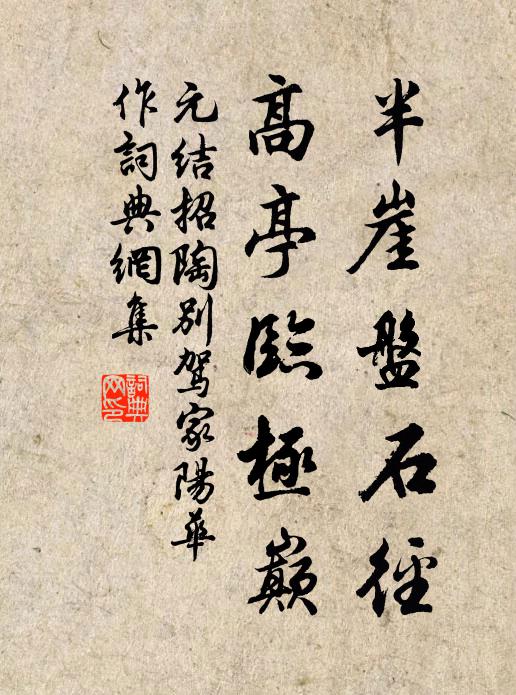 半崖盤石徑
高亭臨極巔
元结招陶別駕家陽華
作詞典網集
詞典
网印